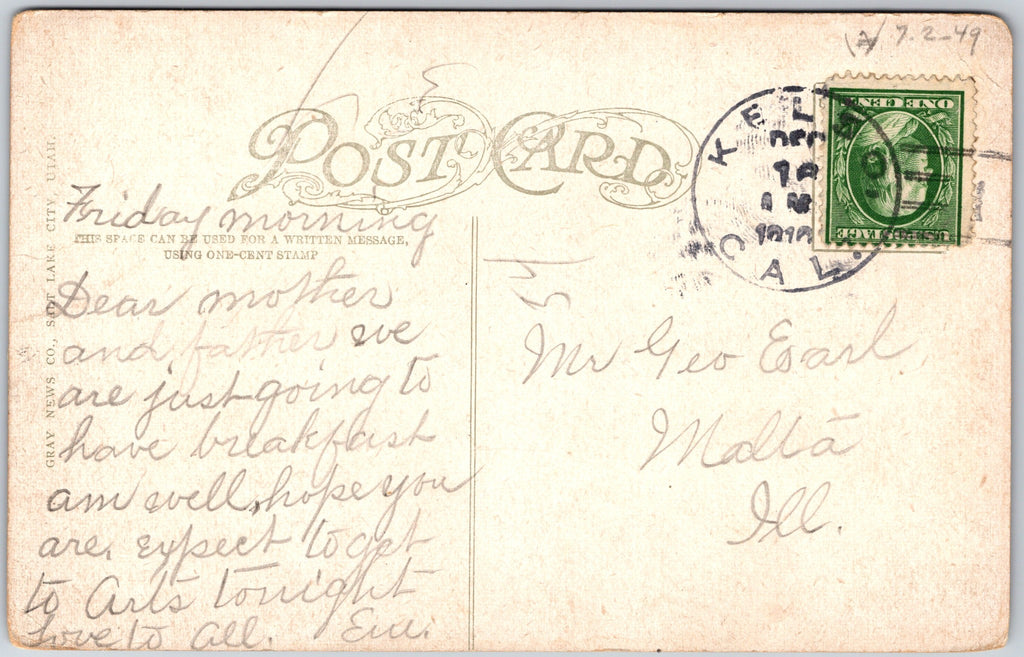 7-2-49
POST CARD
Friday morning
THIS SPACE CAN BE USED FOR A WRITTEN MESSAGE,
USING ONE-CENT STAMP
Dear mother
and father we
are just going to
have breakfast
am well, hope you
are, expect to get
to Arts tonight
Love to all.
GRAY NEWS CO., SALT LAKE CITY, UTAH.
KEL
DEC
1910
CAL.
ONE CENT
Mr Geo Earl.
Malta
Ill.